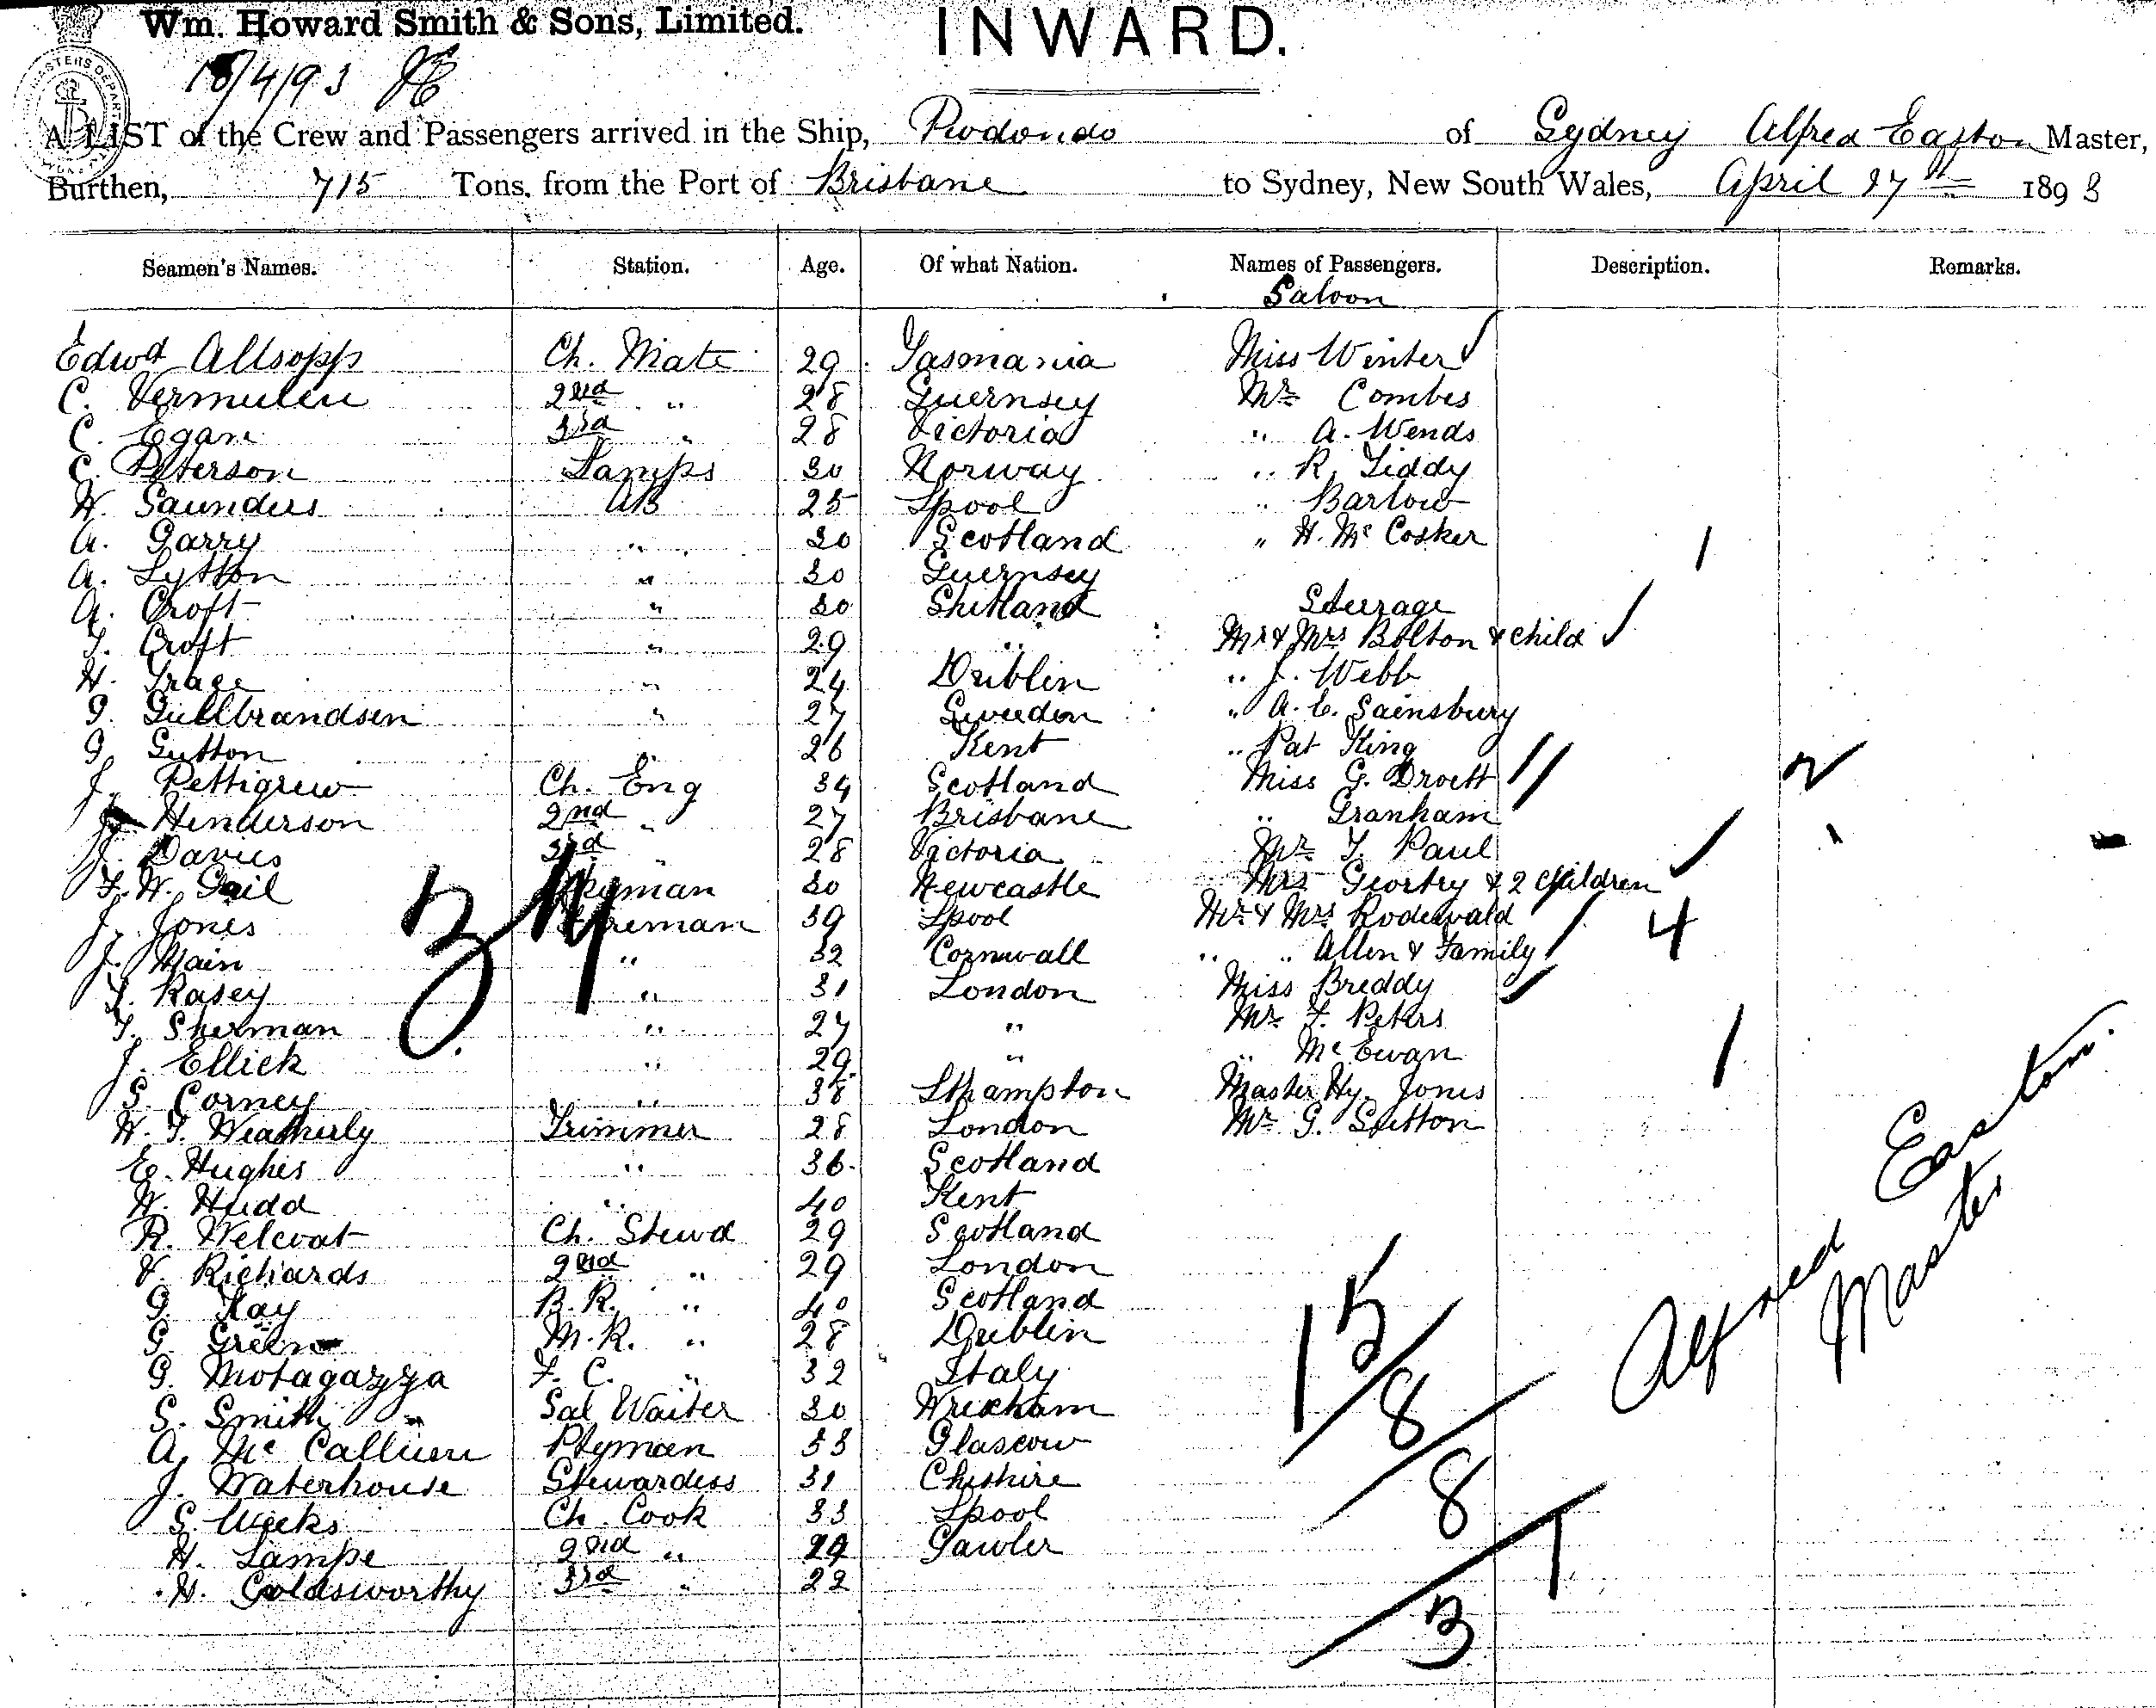 Wm. Howard Smith & Sons, Limited.
INWARD.
18/4/93
A LIST of the Crew and Passengers arrived in the Ship, Rodondo of Sydney Alfred Easton Master,
Burthen, 715 Tons, from the Port of Brisbane to Sydney, New South Wales, April 17th 1893
Seamen's Names. Station. Age. Of what Nation. Names of Passengers. Description. Remarks.
Saloon
Edwd Allsopp Ch. Mate 29 Tasmania Miss Winter
C. Vermulen 2nd " 28 Guernsey Mr Combes
C. Egan 3rd " 28 Victoria " A. Wends
C. Peterson Lamps 30 Norway " R. Liddy
W. Saunders AB 25 Lpool " Barlow
A. Garry " 30 Scotland " H. Mc Cosker 1
A. Lytton " 30 Guernsey
A. Croft " 30 Shetland Steerage
T. Croft " 29 " Mr & Mrs Bolton & child
W. Grace " 24 Dublin " J. Webb
G. Gullbrandsen " 27 Sweeden " A. C. Sainsbury
G. Sutton " 26 Kent " Pat King
J. Pettigrew Ch. Eng 34 Scotland Miss G. Droett 2
Henderson 2nd " 27 Brisbane " Granham
J. Davies 3rd " 28 Victoria Mr T. Paul
F. W. Gail 30 Newcastle Mrs & 2 children
J. Jones Fireman 39 Lpool Mr & Mrs Rodewald 4
J. Main " 32 Cornwall " " Allen & Family
T. Kasey " 31 London Miss Breddy
T. Sherman " 27 " Mr F. Peters
J. Ellick " 29 " " Mc Ewan 1
S. Corney " 38 Sthampton Master Hy. Jones
W. T. Weatherly Trimmer 28 London Mr G. Sutton
E. Hughes " 36 Scotland
W. Hudd " 40 Kent
R. Welcoat Ch. Stewd 29 Scotland
V. Richards 2nd " 29 London
G. Kay B.R. " 40 Scotland
G. Green M.R. " 28 Dublin
G. Motagazza F. C. " 32 Italy
S. Smith Sal Waiter 30 Wrexham
A. Mc Callum Ptyman 33 Glascow
J. Waterhouse Stewardess 31 Cheshire
S. Weeks Ch. Cook 33 Lpool
H. Lampe 2nd " 29 Gawler
H. Goldsworthy 3rd " 22
15/8/8
Alfred Easton.
Master